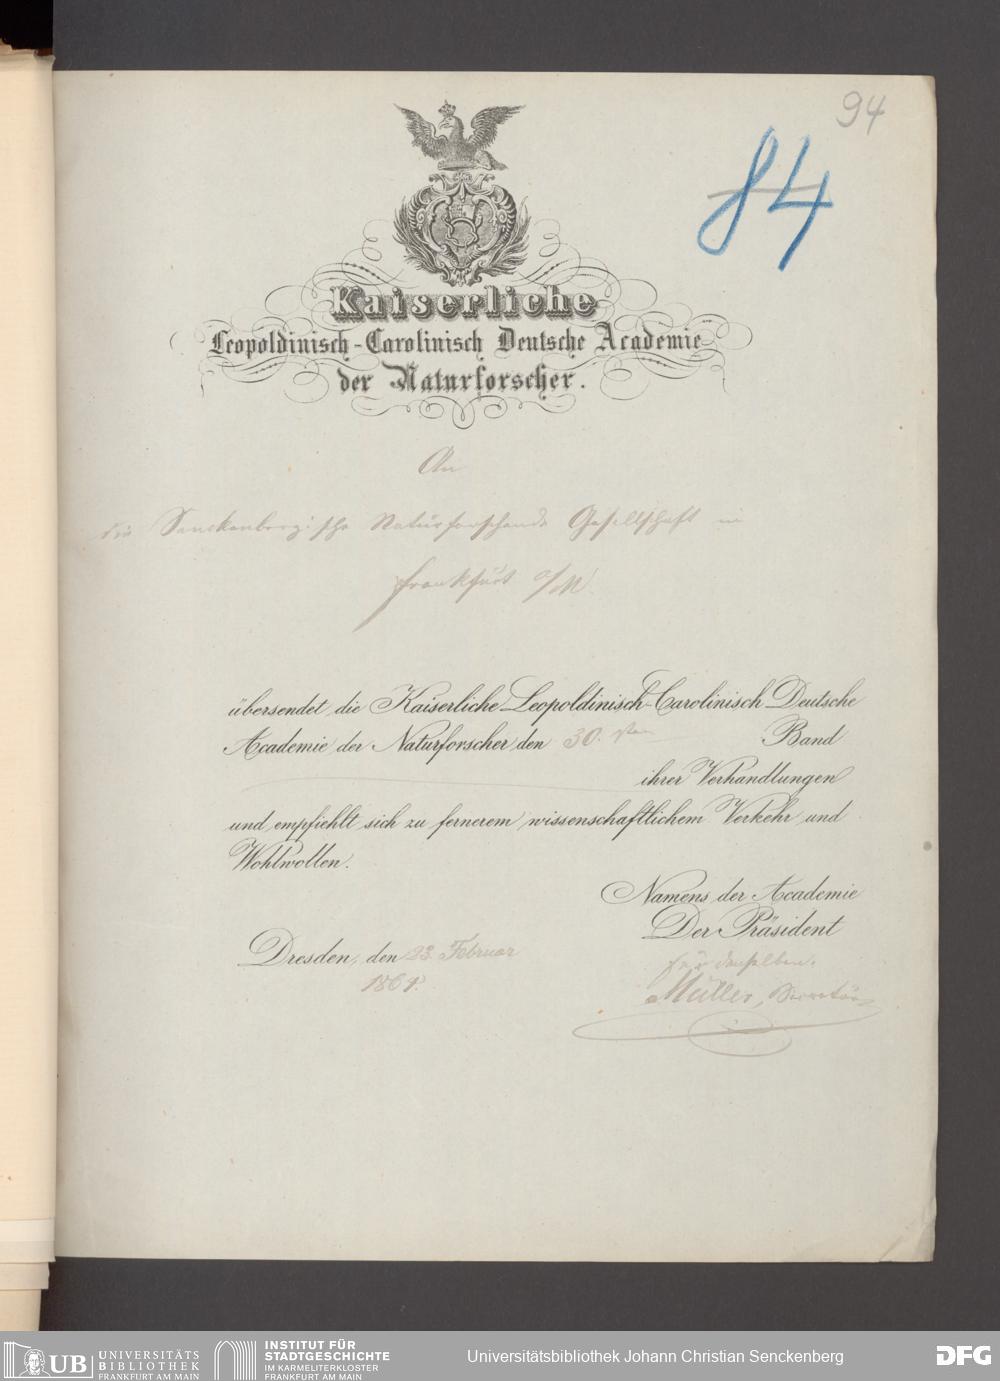 94
84
Kaiserliche
Leopoldinisch-Carolinisch Deutsche Academie
der Naturforscher.
An
die Senckenbergische Naturforschende Gesellschaft in
Frankfurt a/M.
übersendet die Kaiserliche Leopoldinisch-Carolinisch Deutsche
Academie der Naturforscher den 30. sten Band
ihrer Verhandlungen
und empfiehlt sich zu fernerem wissenschaftlichem Verkehr und
Wohlwollen.
Namens der Academie
Der Präsident
Dresden, den 23. Februar
1864.
für denselben.
Müller, Secretär
UB UNIVERSITÄTS
BIBLIOTHEK
FRANKFURT AM MAIN
INSTITUT FÜR
STADTGESCHICHTE
IM KARMELITERKLOSTER
FRANKFURT AM MAIN
Universitätsbibliothek Johann Christian Senckenberg
DFG